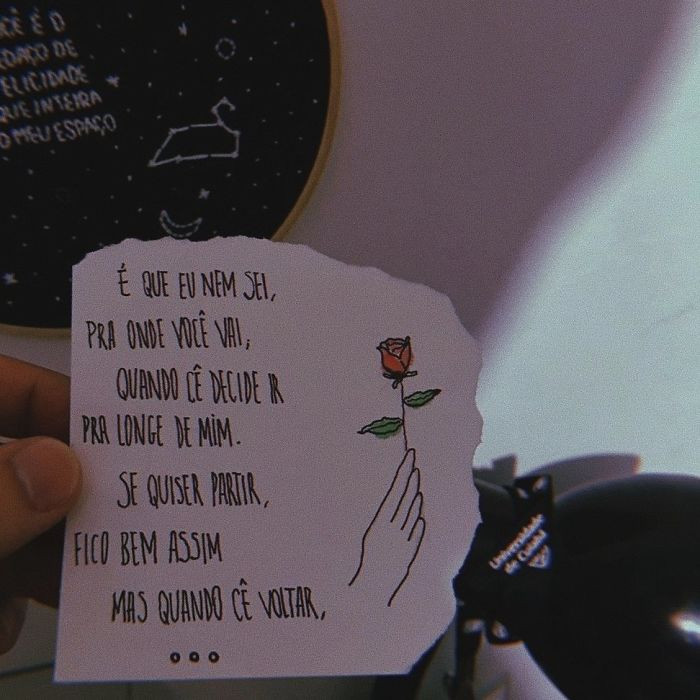 CÊ É O
PEDAÇO DE
FELICIDADE
QUE INTEIRA
O MEU ESPAÇO
É QUE EU NEM SEI,
PRA ONDE VOCÊ VAI,
QUANDO CÊ DECIDE IR
PRA LONGE DE MIM.
SE QUISER PARTIR,
FICO BEM ASSIM
MAS QUANDO CÊ VOLTAR,
...
Universidade
de Cuiabá